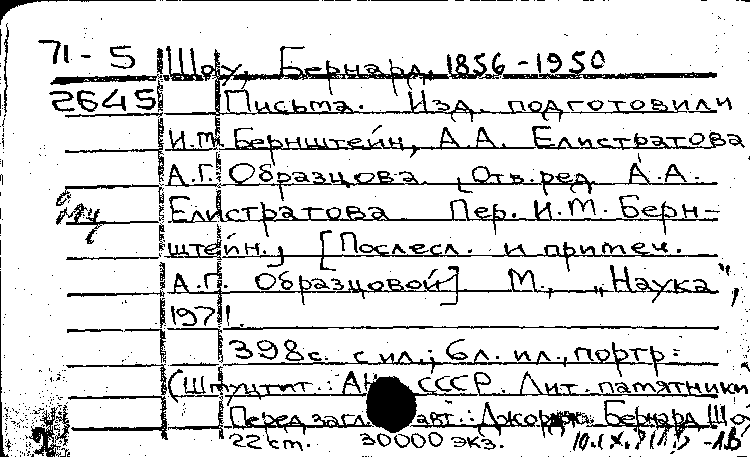 71-5 Шоу, Бернард, 1856-1950
2645 Письма. Изд. подготовили
И.М. Бернштейн, А.А. Елистратова
А.Г. Образцова. [Отв. ред. А.А.
Елистратова. Пер. И.М. Берн-
штейн.] [Послесл. и примеч.
А.Г. Образцовой]. М., „Наука",
1971.
398 с. с ил.; 6 л. ил., портр.
(Шмуцтит.: АН СССР. Лит. памятники
Перед загл. авт.: Джордж Бернард Шоу
22 см. 30000 экз.